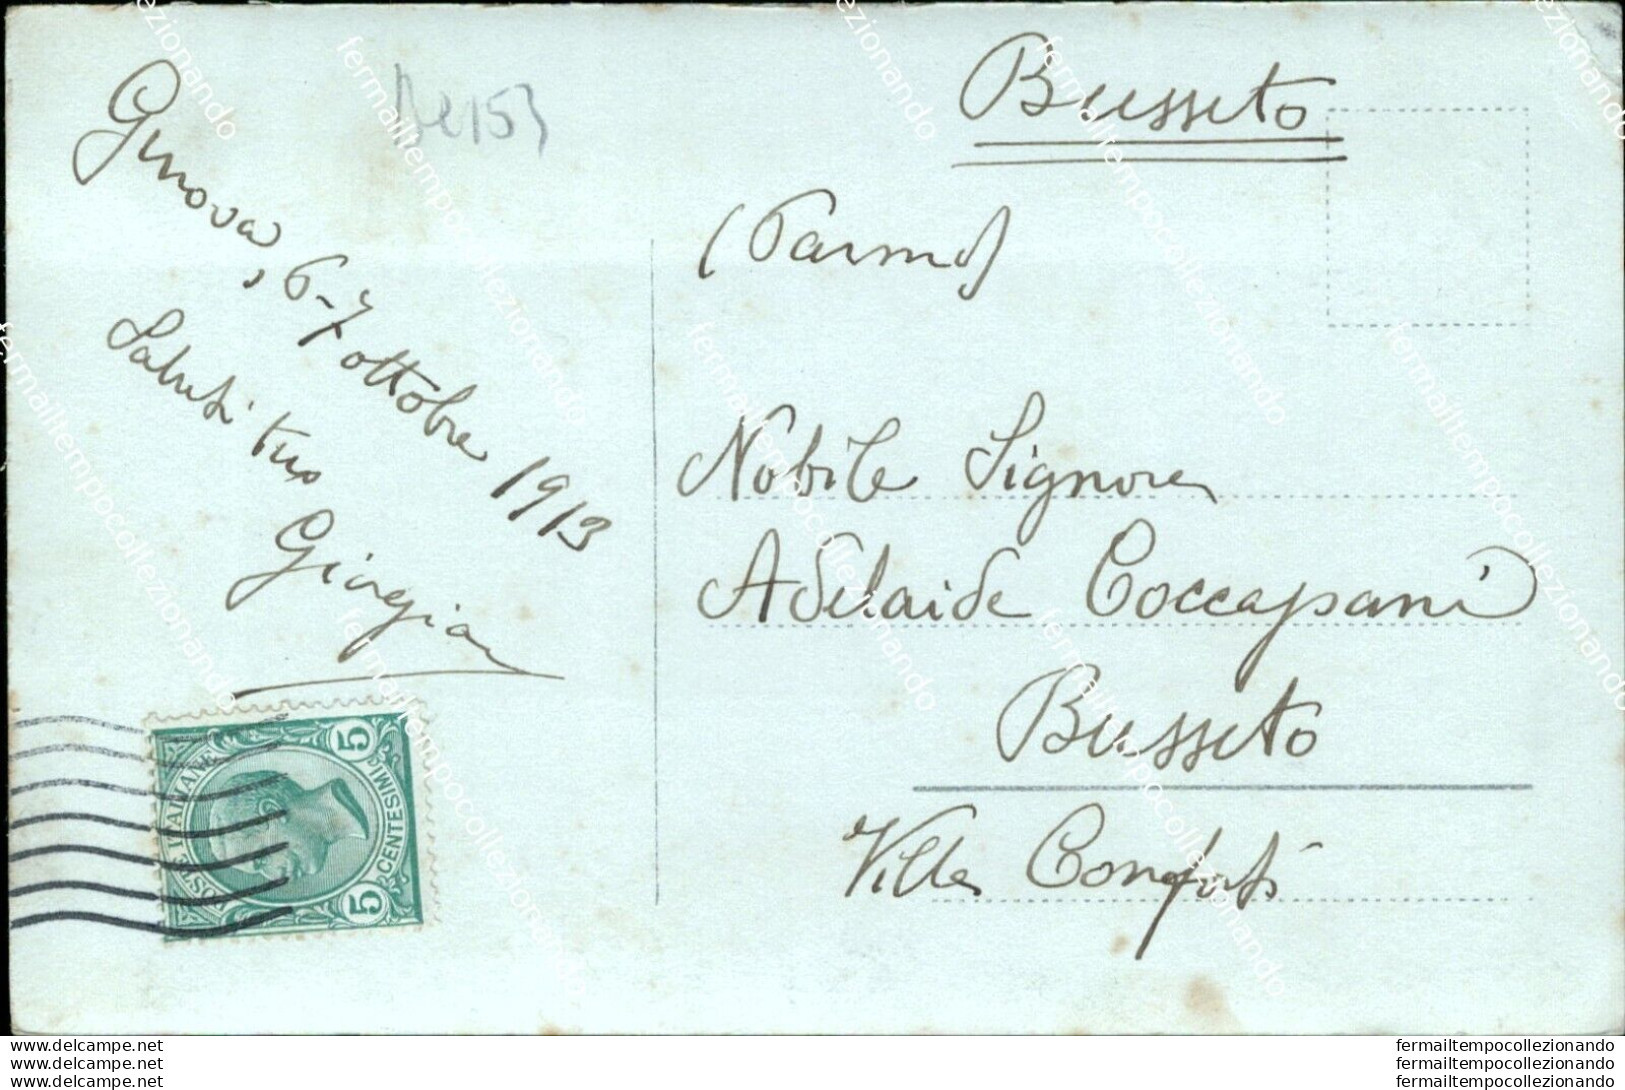 Be153
Genova, 6-7 ottobre 1913
Saluti tuo
Giorgia
5
5
POSTE ITALIANE
CENTESIMI
Busseto
(Parma)
Nobile Signora
Adelaide Coccapani
Busseto
Villa Conforti
fermailtempocollezionando
www.delcampe.net
www.delcampe.net
www.delcampe.net
fermailtempocollezionando
fermailtempocollezionando
fermailtempocollezionando